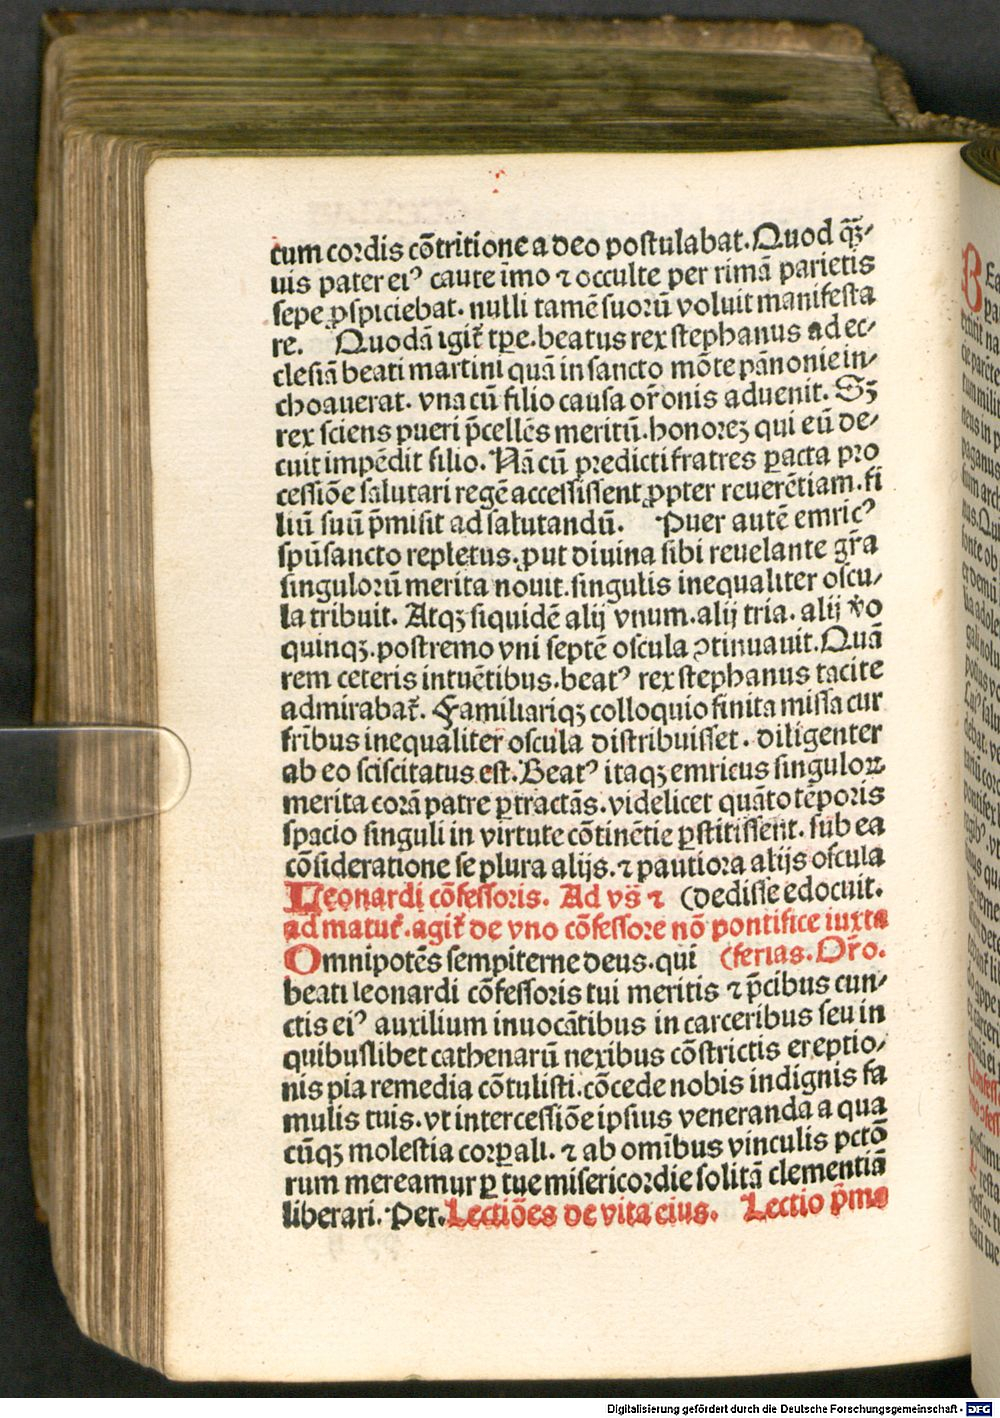 tum cordis cõtritione a deo postulabat. Quod q̃ꝫ⸗
uis pater eiꝰ caute ĩmo ⁊ occulte per rimã parietis
sepe ꝓspiciebat. nulli tamẽ suorũ voluit manifesta
re. Quodã igit̃ tꝑe. beatus rex stephanus ad ec⸗
clesiã beati martini quã in sancto mõte pãnonie in⸗
choauerat. vna cũ filio causa or̃onis aduenit. Sꝫ
rex sciens pueri p̃cellẽs meritũ. honoreꝫ qui eũ de⸗
cuit impẽdit filio. Nã cũ predicti fratres ꝑacta pro
cessiõe salutari regẽ accessissent ꝓpter reuerẽtiam. fi
liũ suũ p̃misit ad salutandũ. Puer autẽ emricꝰ
spũsancto repletus. ꝓut diuina sibi reuelante gr̃a
singulorũ merita nouit. singulis inequaliter oscu⸗
la tribuit. Atqꝫ siquidẽ alij vnum. alij tria. alij ṽo
quinqꝫ. postremo vni septẽ oscula ꝯtinuauit. Quã
rem ceteris intuẽtibus. beatꝰ rex stephanus tacite
admirabat̃. Familiariqꝫ colloquio finita missa cur
fribus inequaliter oscula distribuisset. diligenter
ab eo sciscitatus est. Beatꝰ itaqꝫ emricus singuloꝝ
merita corã patre ꝑtractãs. videlicet quãto tẽporis
spacio singuli in virtute cõtinẽtie ꝑstitissent. sub ea
cõsideratione se plura alijs. ⁊ pautiora alijs oscula
Leonardi cõfessoris. Ad vs̃ ⁊ (dedisse edocuit.
ad matut̃. agit̃ de vno cõfessore nõ pontifice iuxta
Omnipotẽs sempiterne deus. qui (ferias. Or̃o.
beati leonardi cõfessoris tui meritis ⁊ p̃cibus cun⸗
ctis eiꝰ auxilium inuocãtibus in carceribus seu in
quibuslibet cathenarũ nexibus cõstrictis ereptio⸗
nis pia remedia cõtulisti. cõcede nobis indignis fa
mulis tuis. vt intercessiõe ipsius veneranda a qua
cũqꝫ molestia corꝑali. ⁊ ab omĩbus vinculis pctõ
rum mereamur ꝑ tue misericordie solitã clementiã
liberari. Per. Lectiões de vita eius. Lectio p̃ma
Digitalisierung gefördert durch die Deutsche Forschungsgemeinschaft - DFG